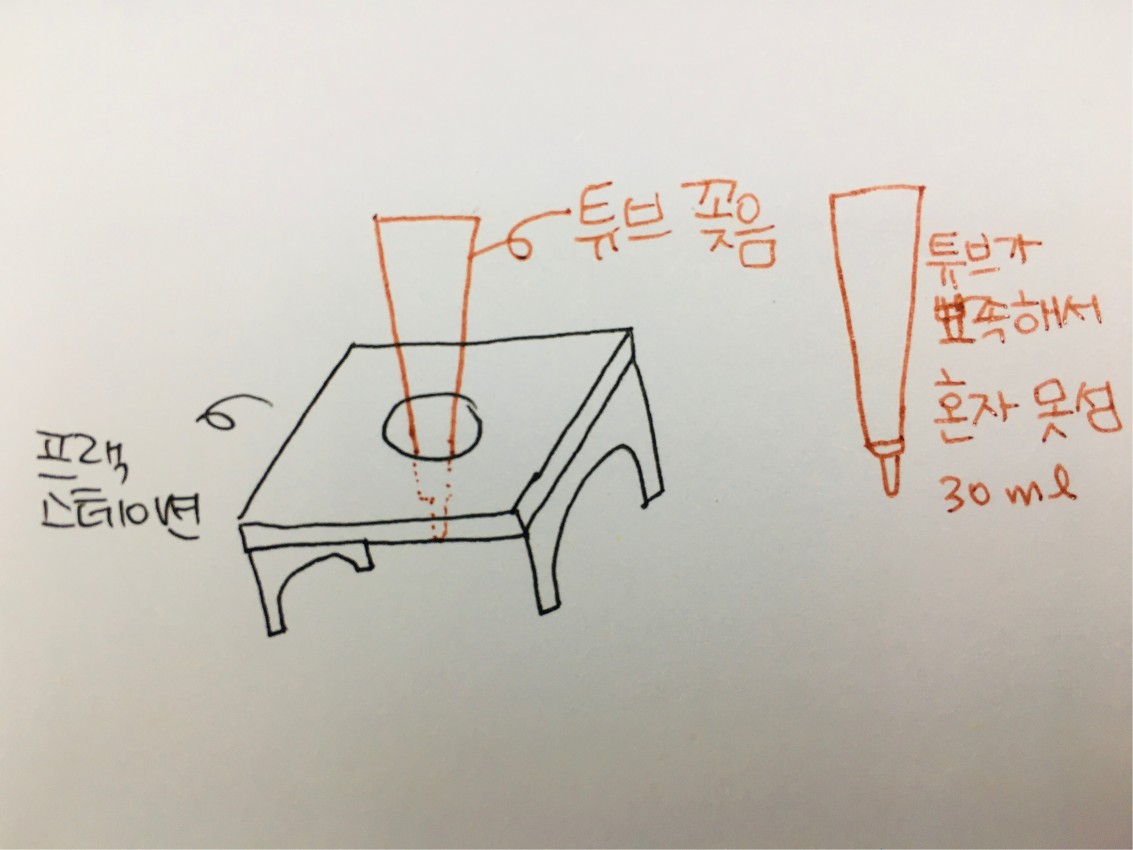 튜브 꽂음
튜브가
뾰족해서
혼자 못섬
30ml
프랙
스테이션